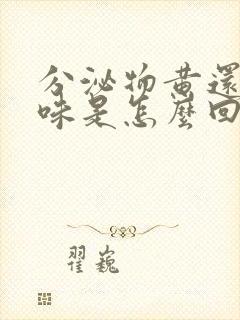 分泌物黄還
味是怎麼回
翟巍